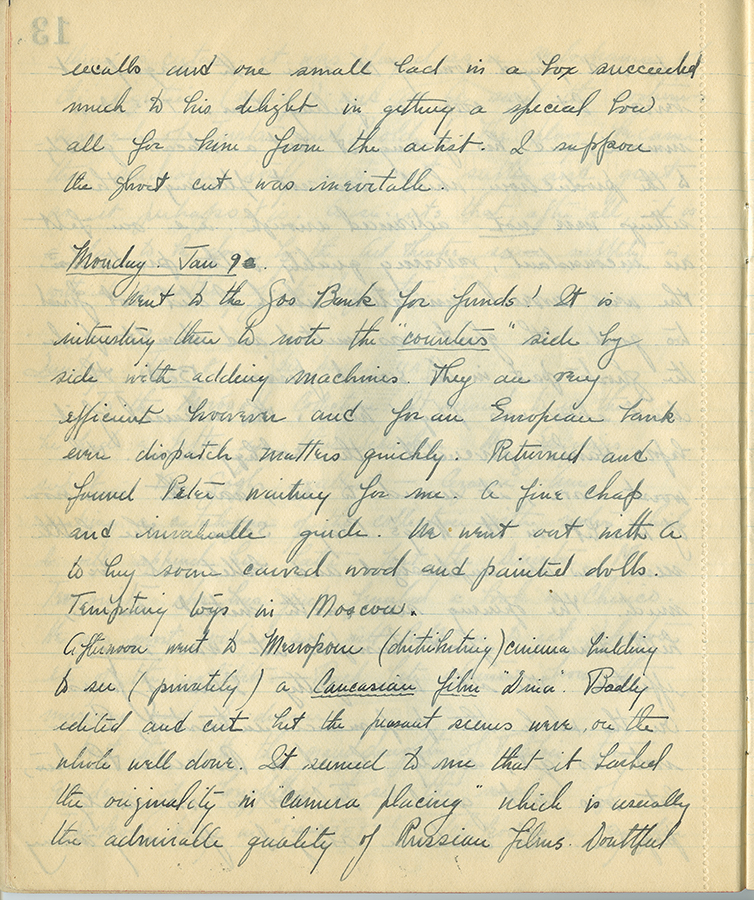 recalls and one small lad in a box succeeded
much to his delight in getting a special bow
all for him from the artist. I suppose
the ghost cut was inevitable.
Monday. Jan 9
Went to the Gos Bank for funds! It is
interesting there to note the "counters" side by
side with adding machines. They are very
efficient however and for an European bank
even dispatch matters quickly. Returned and
found Peter waiting for me. A fine chap
and invaluable guide. We went out with A
to buy some carved wood and painted dolls.
Tempting toys in Moscow.
Afternoon went to (distributing) cinema building
to see (privately) a Caucasian film "Driva". Badly
edited and cut but the peasant scenes were, on the
whole well done. It seemed to me that it lacked
the originality in "camera placing" which is usually
the admirable quality of Russian films. Doubtful
13